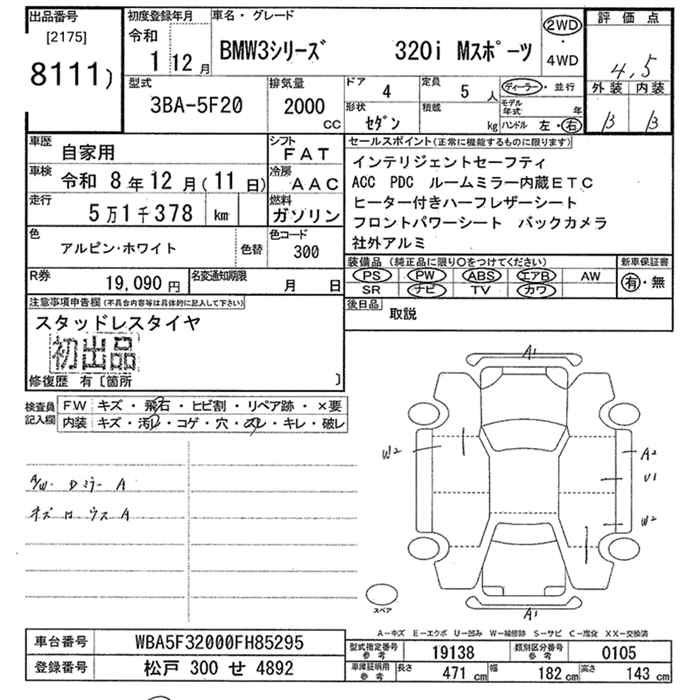 出品番号
[2175]
8111)
初度登録年月
令和
1 12月
車名・グレード
BMW3シリーズ 320i Mスポーツ
2WD
・
4WD
評価点
4.5
外装 内装
B B
型式
3BA-5F20
排気量
2000
CC
ドア
4
定員
5 人
形状
セダン
積載
kg
ディーラー・並行
モデル年式 年
ハンドル 左・右
車歴
自家用
シフト
FAT
車検
令和 8年 12月(11日)
冷房
AAC
走行
5万1千378 km
燃料
ガソリン
色
アルピン・ホワイト
色替
色コード
300
R券
19,090 円
名変通知期限
月 日
セールスポイント(正常に機能するものに限ります)
インテリジェントセーフティ
ACC PDC ルームミラー内蔵ETC
ヒーター付きハーフレザーシート
フロントパワーシート バックカメラ
社外アルミ
装備品(純正品に限り○をつけてください)
PS PW ABS エアB AW
SR ナビ TV カワ
新車保証書
有・無
後日品
取説
注意事項申告欄(不具合内容等は具体的に記入して下さい)
スタッドレスタイヤ
初出品
修復歴 有〔箇所 〕
検査員
記入欄
FW キズ・飛石・ヒビ割・リペア跡・×要
内装 キズ・汚レ・コゲ・穴・スレ・キレ・破レ
A/W. Dミラー A
キズ
A
A1
W2
A2
U1
W2
A1
スペア
A-キズ E-エクボ U-凹み W-補修跡 S-サビ C-腐蝕 XX-交換済
車台番号
WBA5F32000FH85295
登録番号
松戸 300 せ 4892
型式指定番号
参考
19138
類別区分番号
参考
0105
車庫証明用
参考
長さ 471 cm 幅 182 cm 高さ 143 cm